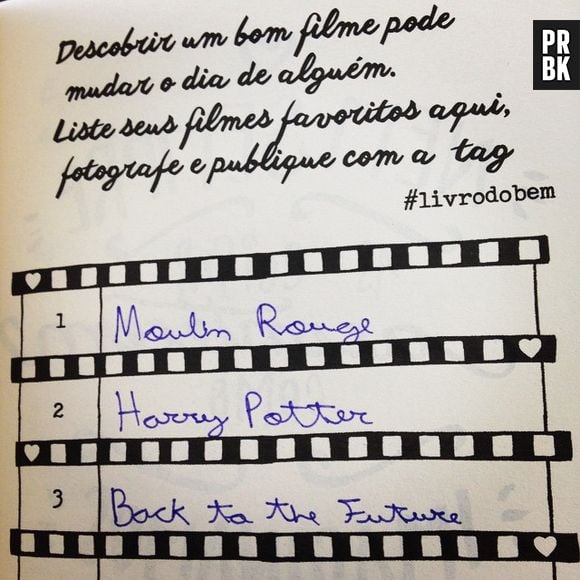 PR
BK
Descobrir um bom filme pode
mudar o dia de alguém.
Liste seus filmes favoritos aqui,
fotografe e publique com a tag
#livrodobem
1 Moulin Rouge
2 Harry Potter
3 Back to the Future